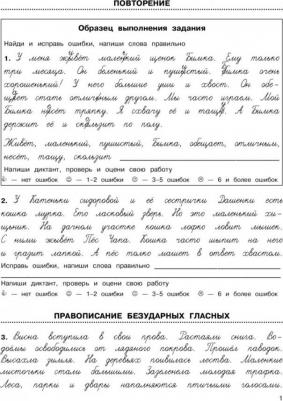 ПОВТОРЕНИЕ
Образец выполнения задания
Найди и исправь ошибки, напиши слова правильно
1. У меня живёт маленький щенок Бимка. Ему только
три месяца. Он беленький и пушистый. Бимка очень
хорошенький! У него большие уши и хвост. Он обе-
щает стать отличным другом. Мы часто играем. Мой
Бимка несёт тряпку. Я схвачу её и тащу. А Бимка
держит её и скользит по полу.
Живёт, маленький, пушистый, Бимка, обещает, отличным,
несёт, тащу, скользит
Напиши диктант, проверь и оцени свою работу
– нет ошибок – 1–2 ошибки – 3–5 ошибок – 6 и более ошибок
2. У Катеньки сидоровой и её сестрички Дашеньки есть
кошка мурка. Ето ласковый зверь. Но это маленький хи-
щник. На дачном участке кошка ларко ловит мышек.
С ними живёт Пёс Чапа. Кошка часто шыпит на него
и гразит лапкой. А пёс только машет в ответ хвастом.
Исправь ошибки, напиши слова правильно
Напиши диктант, проверь и оцени свою работу
– нет ошибок – 1–2 ошибки – 3–5 ошибок – 6 и более ошибок
ПРАВОПИСАНИЕ БЕЗУДАРНЫХ ГЛАСНЫХ
3. Висна вступила в свои права. Растаяли снига. Во-
доёмы освободились от лядяного покрова. Прошёл паводок.
Высахла зимля. На деревьях появилась листва. Маленкие
листочки стали большими. Зазеленела молодая трафка.
Леса, парки и двары наполняются птичьими голосами.
1